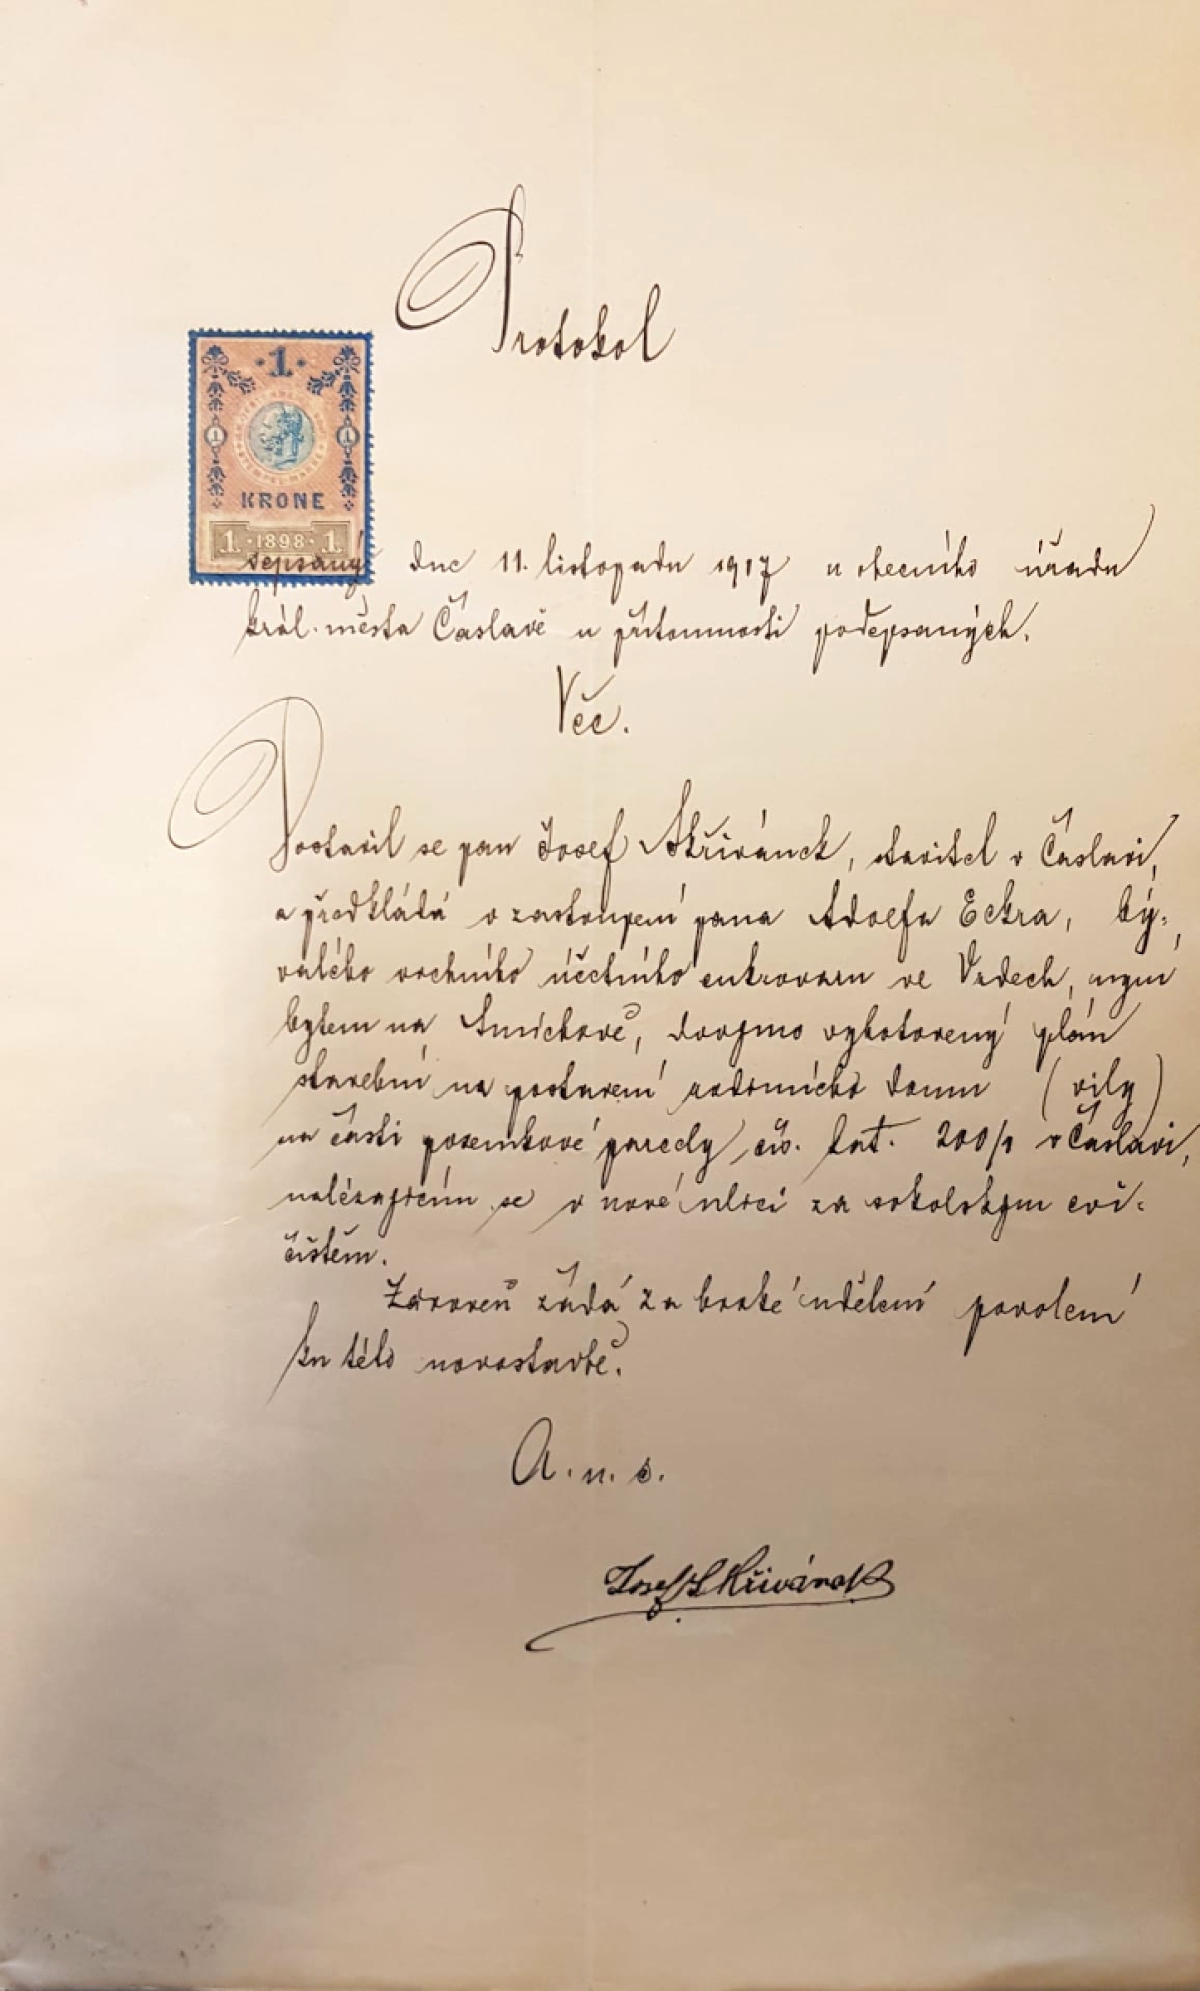 Protokol
1
1 1
KRONE
1 · 1898 · 1
sepsaný dne 11. listopadu 1907 u obecního úřadu
král. města Čáslavě u přítomnosti podepsaných.
Věc.
Dostavil se pan Josef Skřivánek, stavitel v Čáslavi,
a předkládá v zastoupení pana Adolfa Eckra, bý-
valého vrchního účetního cukrovaru ve Vrdech, nyní
bytem na Smíchově, dvojmo vyhotovený plán
stavební na postavení rodinného domu (vily)
na části pozemkové parcely čís. kat. 200/1 v Čáslavi,
nalézajícím se v nové ulici za sokolským cvi-
čištěm.
Zároveň žádá za brzké udělení povolení
ku této novostavbě.
A. u. s.
Josef Skřivánek